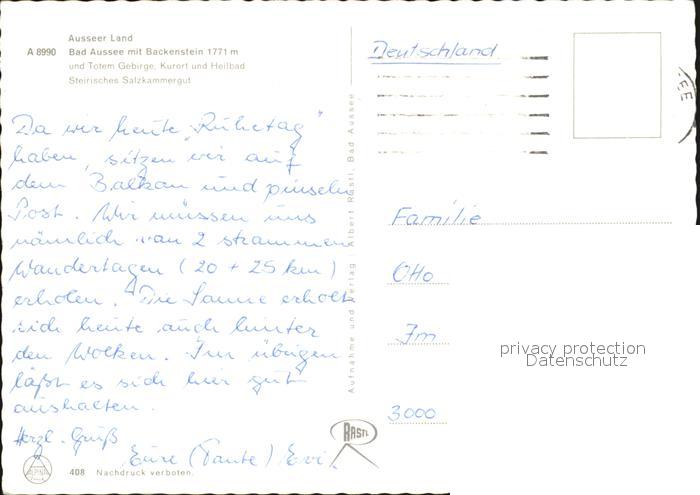 Ausseer Land
A 8990 Bad Aussee mit Backenstein 1771 m
und Totem Gebirge, Kurort und Heilbad
Steirisches Salzkammergut
Da wir heute "Ruhetag"
haben, sitzen wir auf
dem Balkan und pinseln
Post. Wir müssen uns
nämlich von 2 strammen
Wandertagen (20 + 25 km)
erholen. Die Sonne erholt
sich heute auch hinter
den Wolken. Im übrigen
läßt es sich hier gut
aushalten.
Herzl. Gruß
Eure (Tante) Evi
ALPINA
408 Nachdruck verboten.
Aufnahme und Verlag: Albert Rastl, Bad Aussee
RASTL
Deutschland
EE
Familie
Otto
Im
3000
privacy protection
Datenschutz